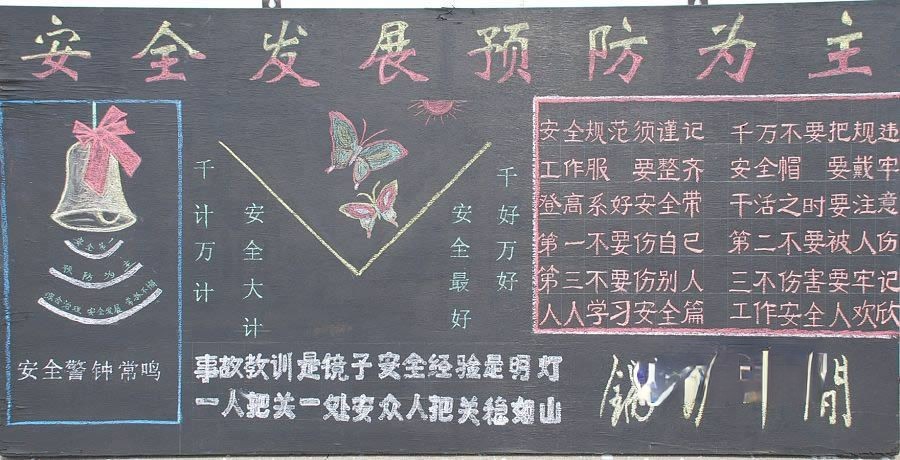 安全发展预防为主
预防为主
综合治理 安全发展
安全警钟常鸣
千计万计
安全大计
安全最好
千好万好
安全规范须谨记 千万不要把规违
工作服 要整齐 安全帽 要戴牢
登高系好安全带 干活之时要注意
第一不要伤自己 第二不要被人伤
第三不要伤别人 三不伤害要牢记
人人学习安全篇 工作安全人欢欣
事故教训是镜子安全经验是明灯
一人把关一处安众人把关稳如山